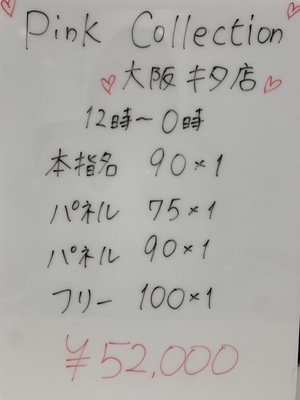 Pink Collection
大阪キタ店
12時〜0時
本指名 90×1
パネル 75×1
パネル 90×1
フリー 100×1
¥52,000